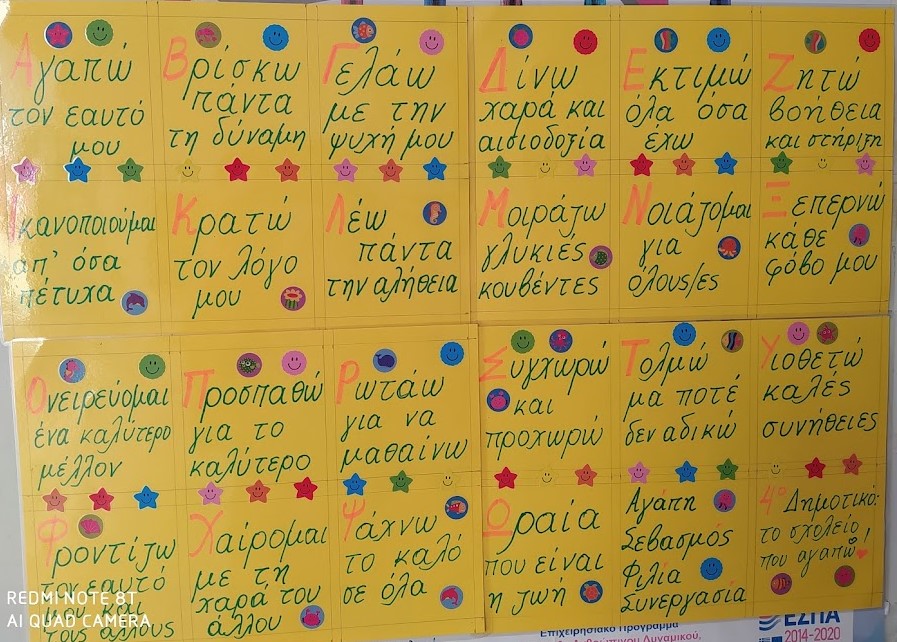 Αγαπώ
τον εαυτό
μου
Βρίσκω
πάντα
τη δύναμη
Γελάω
με την
ψυχή μου
Δίνω
χαρά και
αισιοδοξία
Εκτιμώ
όλα όσα
έχω
Ζητώ
βοήθεια
και στήριξη
Ικανοποιούμαι
απ' όσα
πέτυχα
Κρατώ
τον λόγο
μου
Λέω
πάντα
την αλήθεια
Μοιράζω
γλυκιές
κουβέντες
Νοιάζομαι
για
όλους/ες
Ξεπερνώ
κάθε
φόβο μου
Ονειρεύομαι
ένα καλύτερο
μέλλον
Προσπαθώ
για το
καλύτερο
Ρωτάω
για να
μαθαίνω
Συγχωρώ
και
προχωρώ
Τολμώ
μα ποτέ
δεν αδικώ
Υιοθετώ
καλές
συνήθειες
Φροντίζω
τον εαυτό
μου και
τους άλλους
Χαίρομαι
με τη
χαρά του
άλλου
Ψάχνω
το καλό
σε όλα
Ωραία
που είναι
η ζωή
Αγάπη
Σεβασμός
Φιλία
Συνεργασία
4º Δημοτικό:
το σχολείο
που αγαπώ!
REDMI NOTE 8T
AI QUAD CAMERA
Επιχειρησιακό Πρόγραμμα
Δυναμικού,
ΕΣΠΑ
2014-2020